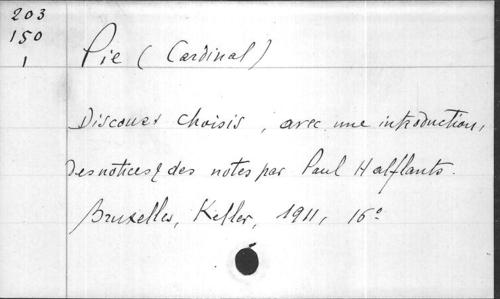 203
150
1
Pie (Cardinal)
Discours choisis, avec une introduction,
des notices & des notes par Paul Halflants.
Bruxelles, Keller, 1911, 16°